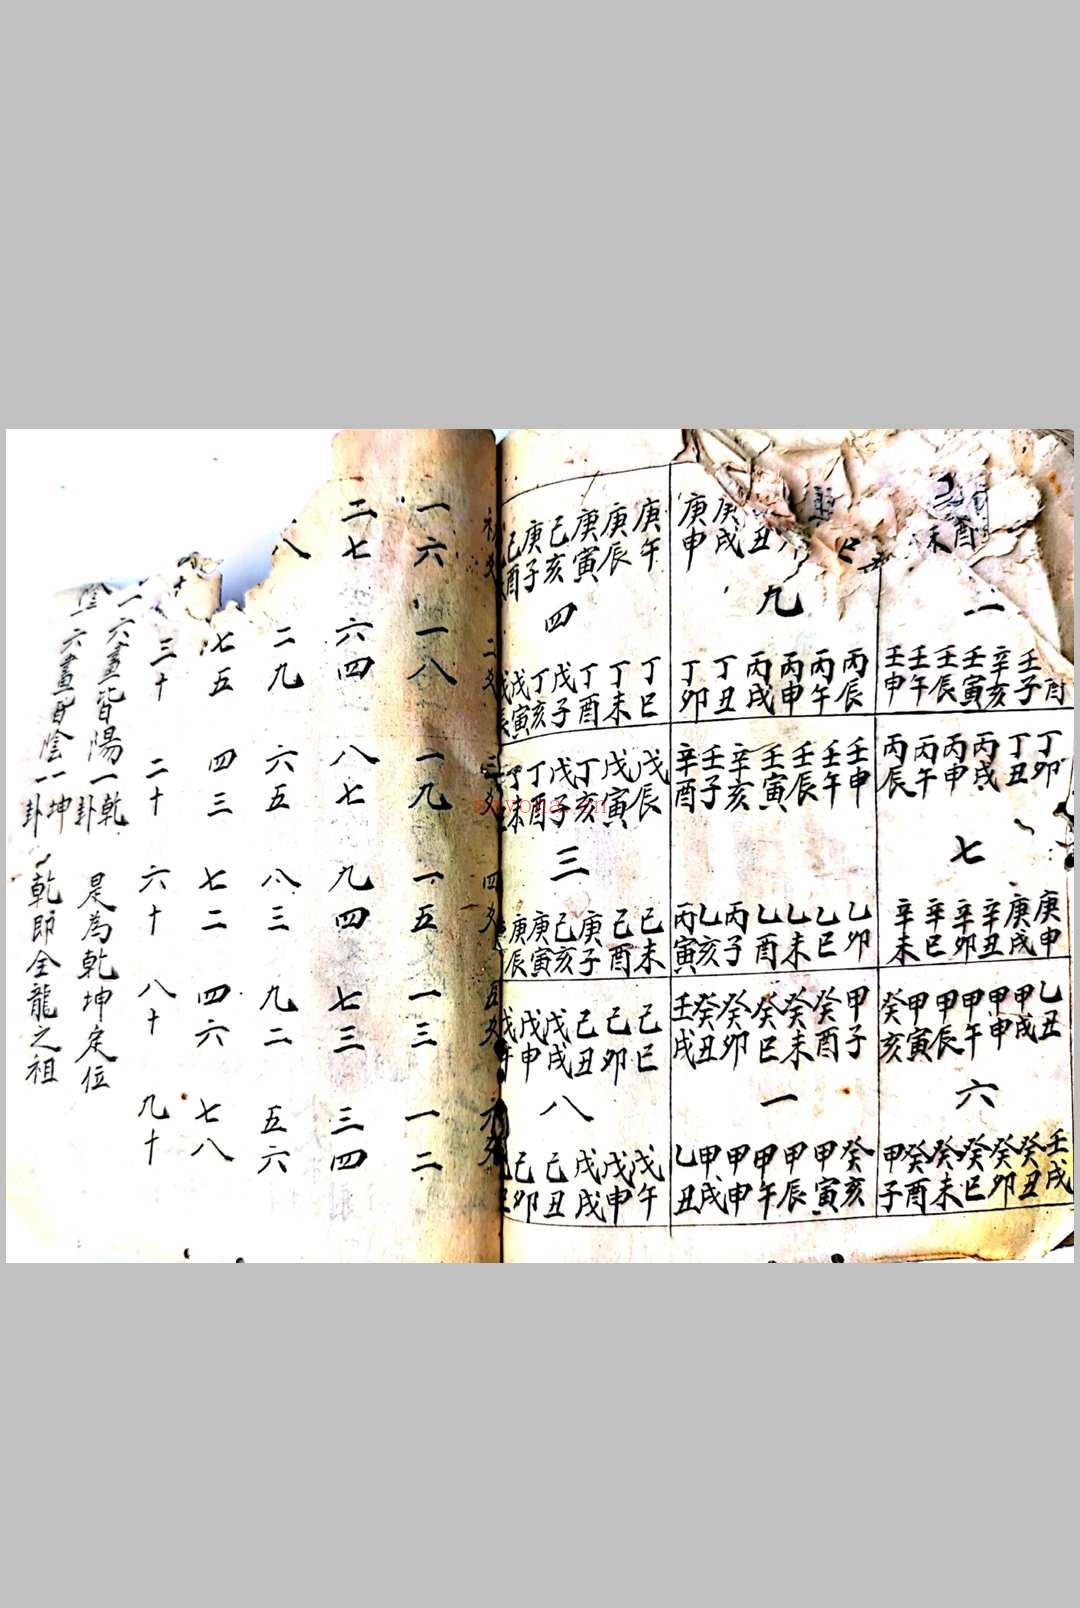 未
己酉
一
酉
壬子
辛亥
壬寅
壬辰
壬午
壬申
丁卯
丁丑
丙戌
丙申
丙午
丙辰
七
庚申
庚戌
辛丑
辛卯
辛巳
辛未
乙丑
甲戌
甲申
甲午
甲辰
甲寅
癸亥
六
壬戌
癸丑
癸卯
癸巳
癸未
癸酉
甲子
丑
庚戌
庚申
九
丙辰
丙午
丙申
丙戌
丁丑
丁卯
壬申
壬午
壬辰
壬寅
辛亥
壬子
辛酉
乙卯
乙巳
乙未
乙酉
丙子
乙亥
丙寅
甲子
癸酉
癸未
癸巳
癸卯
癸丑
壬戌
一
癸亥
甲寅
甲辰
甲午
甲申
甲戌
乙丑
庚午
庚辰
庚寅
己亥
庚子
己酉
四
丁巳
丁未
丁酉
戊子
丁亥
戊寅
戊辰
戊寅
丁亥
戊子
丁酉
丁未
三
己未
己酉
庚子
己亥
庚寅
庚辰
己巳
己卯
己丑
戊戌
戊申
戊午
八
戊午
戊申
戊戌
己丑
己卯
初爻 二爻 三爻 四爻 五爻 六爻
一六 一八 一九 一五 一三 一二
二七 六四 八七 九四 七三 三四
八 二九 六五 八三 九二 五六
七五 四三 七二 四六 七八
三十 二十 六十 八十 九十
一六畫皆陽一乾卦 是為乾坤定位
陰一六畫皆陰一坤卦 乾即全龍之祖